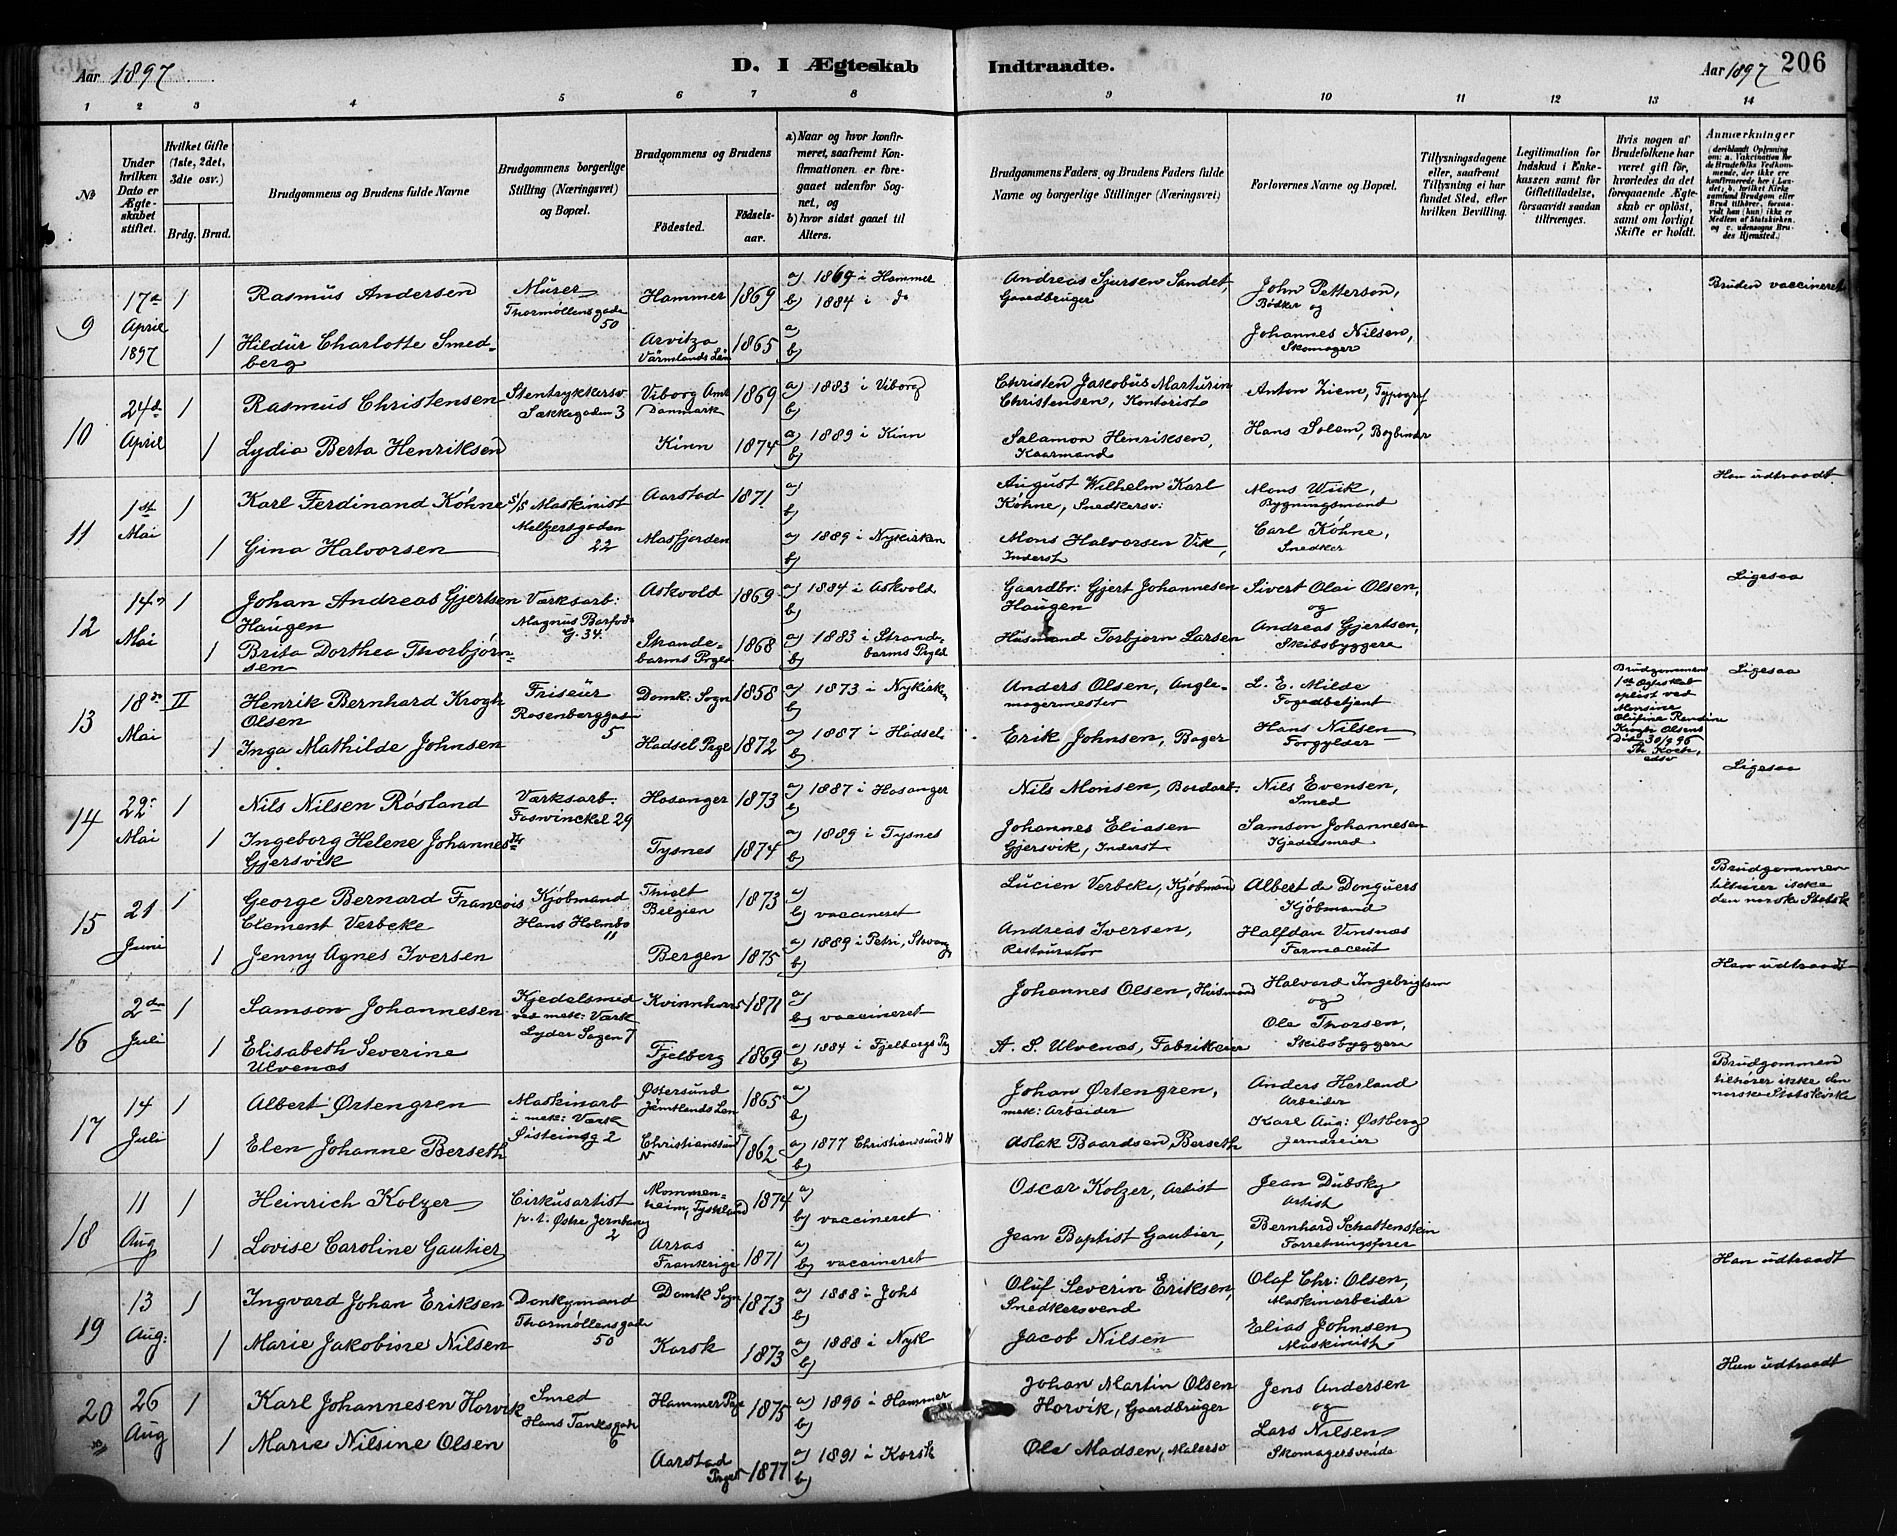 Aar 1897
D. I Ægteskab
Indtraadte.
Aar 1897
206
1 2 3 4 5 6 7 8 9 10 11 12 13 14
No
Under hvilken Dato er Ægteskabet stiftet.
Hvilket Gifte (1ste, 2det, 3die osv.)
Brdg. Brud.
Brudgommens og Brudens fulde Navne
Brudgommens borgerlige Stilling (Næringsvei) og Bopæl.
Brudgommens og Brudens
Födested.
Födselsaar.
a) Naar og hvor konfirmeret, saafremt Konfirmationen er foregaaet udenfor Sognet, og
b) hvor sidst gaaet til Alters.
Brudgommens Faders, og Brudens Faders fulde Navne og borgerlige Stillinger (Næringsvei)
Forlovernes Navne og Bopæl.
Tillysningsdagene eller, saafremt Tillysning ei har fundet Sted, efter hvilken Bevilling.
Legitimation for Indskud i Enkekassen samt for Giftetilladelse, forsaavidt saadan tiltrænges.
Hvis nogen af Brudefolkene har været gift för, hvorledes da det foregaaende Ægteskab er oplöst, samt om lovligt Skifte er holdt.
Anmærkninger (deriblandt Oplysning om: a. Vakcination for de Brudefolks Vedkommende, der ikke ere konfirmerede her i Landet; b. hvilket Kirkesamfund Brudgom eller Brud tilhörer, forsaavidt han (hun) ikke er Medlem af Statskirken, og c. udensogns Brudes Hjemsted.)
9
17de April 1897
1
Rasmus Andersen
Murer Thormøllensgade 50
Hammer
1869
a) 1869 i Hammer
b) 1884 i do
Andreas Sjursen Sandet, Gaardbruger
John Petterson, Bødker og
Bruden vaccineret
1
Hildur Charlotte Smedberg
Arvitza Värmlands Län
1865
a)
b)
Johannes Nilsen, Skomager
10
24de April
1
Rasmus Christensen
Stentrykkersv. Sækkegaden 3
Viborg Amt Danmark
1869
a) 1883 i Viborg
b)
Christen Jakobus Marturin Christensen, Kontorist
Anton Ziem, Typograf
1
Lydia Berta Henriksen
Kinn
1874
a) 1889 i Kinn
b)
Salamon Henriksen, Kaarmand
Hans Solem, Bogbinder
11
1ste Mai
1
Karl Ferdinand Köhne
S/S Maskinist Meltzersgaden 22
Aarstad
1871
a)
b)
August Wilhelm Karl Köhne, Snedkersv:
Mons Wiik, Bygningsmand
Han udtraadt
1
Gina Halvorsen
Masfjorden
a) 1889 i Nykirken
b)
Mons Halvorsen Vik, Inderst
Carl Köhne, Snedker
12
14de Mai
1
Johan Andreas Gjertsen Haugen
Værksarb: Magnus Barfods G. 34.
Askvold
1869
a) 1884 i Askvold
b)
Gaardbr: Gjert Johannesen Haugen
Sivert Olai Olsen, og
Ligesaa
1
Brita Dorthea Thorbjörnsen
Strandebarms Prgld
1868
a) 1883 i Strandebarms Prgld
b)
Husmand Torbjorn Larsen
Andreas Gjertsen, Skibsbyggere
13
18de Mai
II
Henrik Bernhard Krogh Olsen
Friseur Rosenberggad 5
Domk. Sogn
1858
a) 1873 i Nykirken
b)
Anders Olsen, Anglemagermester
L. E. Milde Fogedbetjent
Brudgommens 1ste Ægteskab oplöst ved Monsine Olufine Rendine Krogh Olsens Död 30/9 96 Th. Koch, edsv
Ligesaa
1
Inga Mathilde Johnsen
Hadsel Prgld
1872
a) 1887 i Hadsel
b)
Erik Johnsen, Bager
Hans Nilsen Forgylder
14
29de Mai
1
Nils Nilsen Røsland
Værksarb. Fosvinckel 29
Hosanger
1873
a) 1887 i Hosanger
b)
Nils Monsen, Bordarb.
Nils Evensen, Smed
Ligesaa
1
Ingeborg Helene Johannesdtr Gjersvik
Tysnes
1874
a) 1889 i Tysnes
b)
Johannes Eliasen Gjersvik, Inderst.
Samson Johannesen Kjedelsmed
15
21 Juni
1
George Bernard Francois Clement Verbeke
Kjöbmand Hans Holmbo 11
Thielt Belgien
1873
a)
b) vaccineret
Lucien Verbeke, Kjöbmand
Albert de Donquers Kjöbmand
Brudgommen tilhører ikke den norske Statsk
1
Jenny Agnes Iversen
Bergen
1875
a) 1889 i Petri, Stvang.
b)
Andreas Iversen, Restauratør
Halfdan Vinsnæs Farmaceut
16
2den Juli
1
Samson Johannesen
Kjedelsmed ved mek: Værk Lyder Sagen 7
Kvinnherred
1871
a)
b) vaccineret
Johannes Olsen, Husmand
Halvard Ingebrigtsen og
Han udtraadt
1
Elisabeth Severine Ulvenæs
Fjelberg
1869
a) 1884 i Fjelbergs Pg
b)
A. S. Ulvenæs, Fabrikeier
Ole Thorsen, Skibsbyggere
17
14 Juli
1
Albert Örtengren
Maskinarb i mek: Værk Sisteingg 2
Östersund Jämtlands Län
1865
a)
b)
Johan Örtengren, mek: Arbeider
Anders Herland Arbeider
Brudgommen tilhører ikke den norske Statskirke
1
Elen Johanne Berseth
Christianssund N
1862
a) 1877 Christianssund N
b)
Aslak Baardsen Berseth
Karl Aug: Østberg Jerndreier
18
11 Aug
1
Heinrich Kolzer
Cirkusartist p. t. Østre Jernbaneg 2
Mommenheim, Tyskland
1874
a)
b) vaccineret
Oscar Kolzer, Artist
Jean Dubsky Artist
1
Lovise Caroline Gautier
Arras Frankrige
1871
a)
b) vaccineret
Jean Baptist Gautier,
Bernhard Schattenstein Forretningsfører
19
13 Aug:
1
Ingvard Johan Eriksen
Donkymand Thormøllensgade 50
Domk Sogn
1873
a) 1888 i Johs
b)
Oluf Severin Eriksen, Snedkersvend
Olaf Chr: Olsen, Maskinarbeider
Han udtraadt
1
Marie Jakobine Nilsen
Korsk
1873
a) 1888 i Nykl
b)
Jacob Nilsen
Elias Johnsen Maskinist
20
26 Aug
1
Karl Johannesen Horvik
Smed Hans Tanksgade 6
Hammer Pgld
1875
a) 1890 i Hammer
b)
Johan Martin Olsen Horvik, Gaardbruger
Jens Andersen og
Hun udtraadt
1
Marie Nilsine Olsen
Aarstad Prgld
1877
a) 1891 i Korsk
b)
Ole Madsen, Malersv
Lars Nilsen Skomagersvende